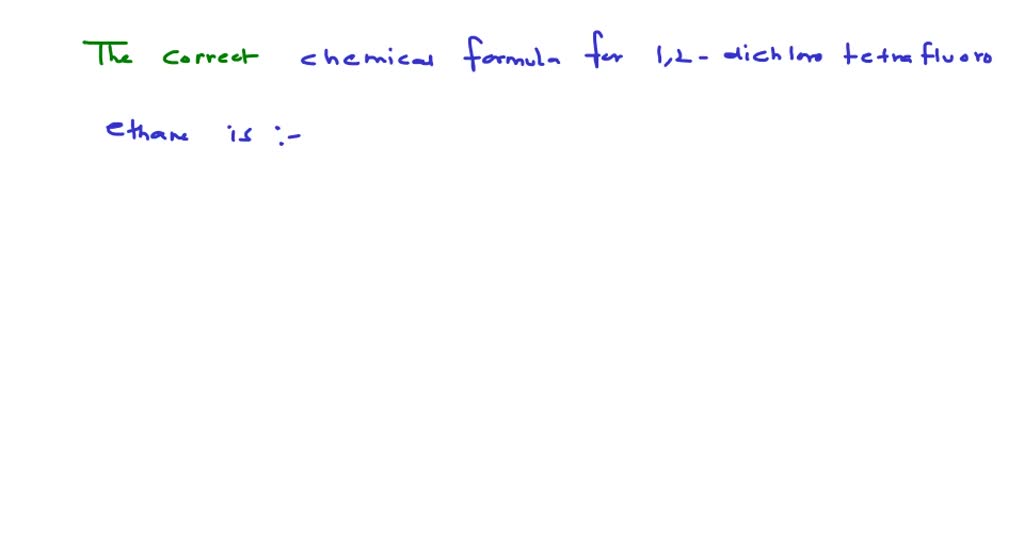 The correct chemical formula for 1,2-dichloro tetrafluoro
ethane is :-